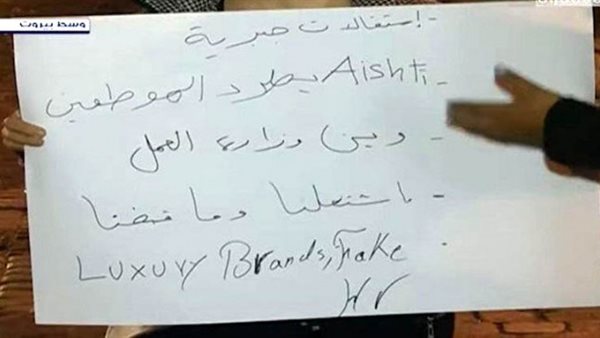 وسط بيروت
- إستقالات جبرية
- Aishti يطرد الموظفين
- وين وزارة العمل
- اشتغلنا وما قبضنا
- Luxury Brands, Fake
Hr